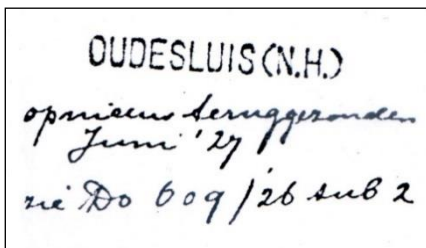 OUDESLUIS (N.H.)
opnieuw teruggezonden
Juni '27
zie Do 609/26 sub 2